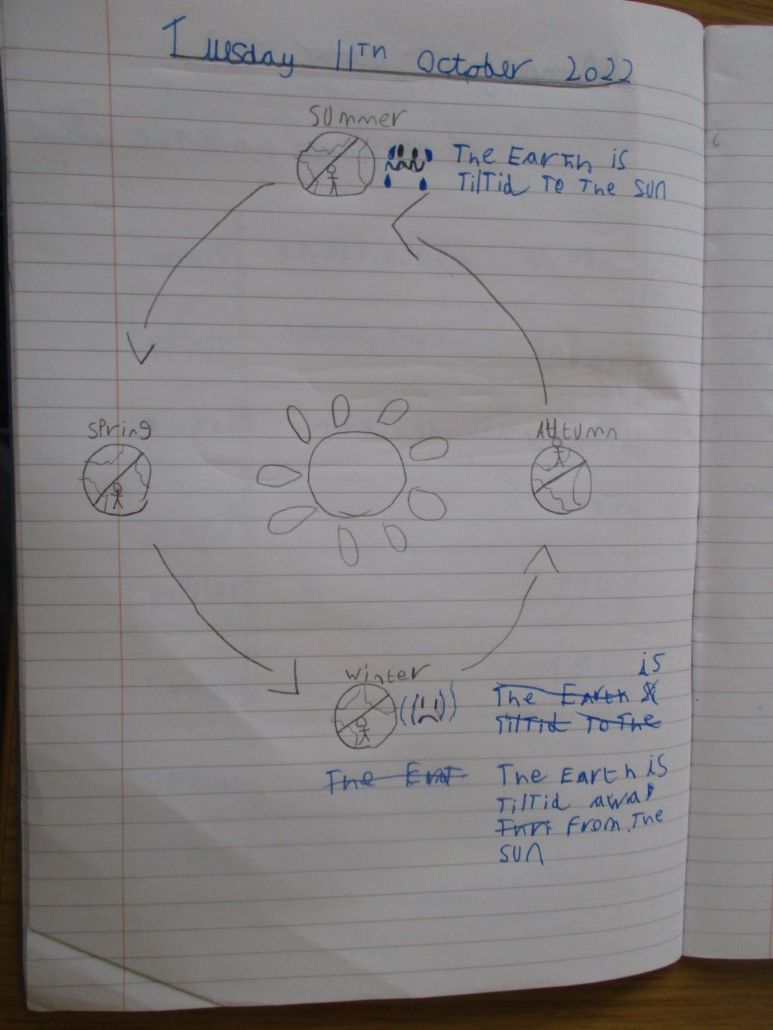 Tuesday 11Th October 2022
Summer
The Earth is
TilTid To The sun
spring
Autumn
winter
is
The Earth
TilTid To The
The Ert
The Earth is
TilTid away
From The
sun